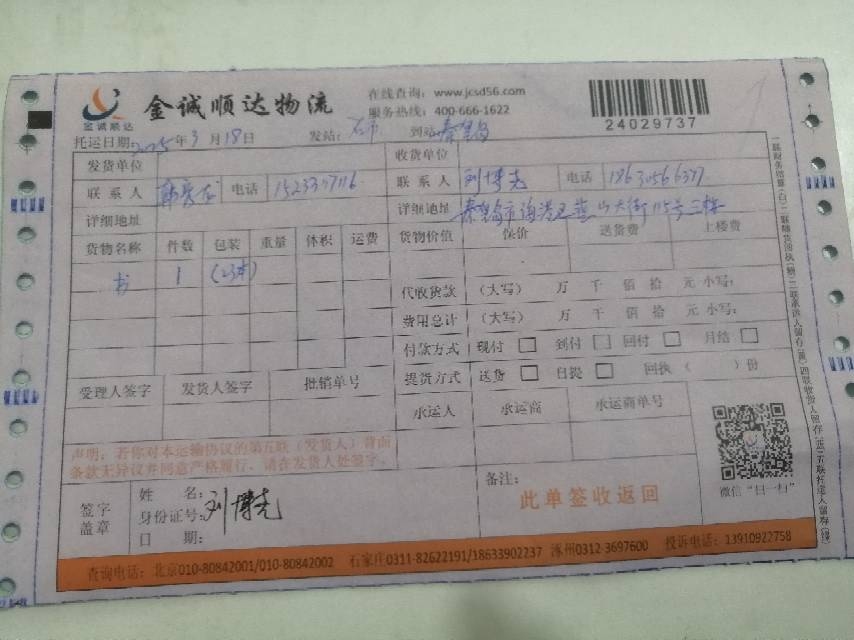 金诚顺达
金诚顺达物流
在线查询: www.jcsd56.com
服务热线: 400-666-1622
24029737
托运日期2025年3月18日 发站: 到站 秦皇岛
发货单位 收货单位
联系人 电话 联系人 刘博尧 电话
详细地址 详细地址 秦皇岛市海港区燕山大街115号三楼
货物名称 件数 包装 重量 体积 运费 货物价值 保价 送货费 上楼费
书 1 (23本)
代收货款 (大写) 万 千 佰 拾 元 小写:
费用总计 (大写) 万 千 佰 拾 元 小写:
付款方式 现付 到付 回付 月结
提货方式 送货 自提 回执 ( ) 份
受理人签字 发货人签字 批销单号
承运人 承运商 承运商单号
声明: 若你对本运输协议的第五联(发货人)背面
条款无异议并同意严格履行, 请在发货人处签字。
签字
盖章
姓 名:
身份证号: 刘博尧
日 期:
备注:
此单签收返回
微信“扫一扫”
查询电话: 北京010-80842001/010-80842002 石家庄0311-82622191/18633902237 涿州0312-3697600 投诉电话: 13910922758